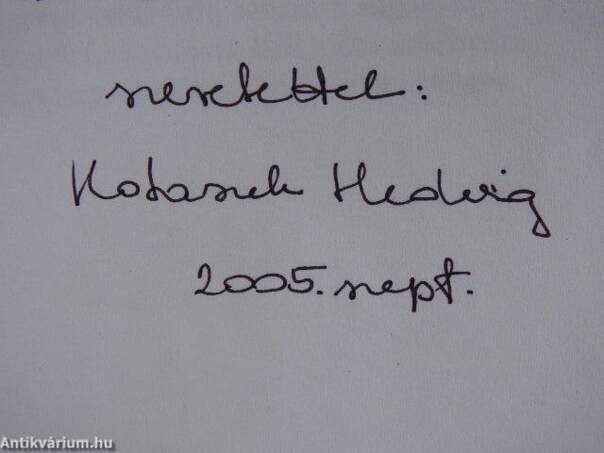 szeretettel:
Kotaszek Hedvig
2005. szept.
Antikvárium.hu